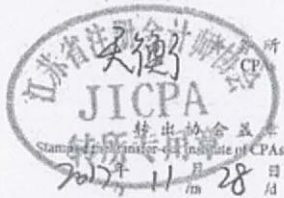 江苏省注册会计师协会
天衡
所
CPAs
JICPA
转所专用章
转出协会盖章
Stamp of the transfer-out Institute of CPAs
2017年 11月 28日
/y /m /d